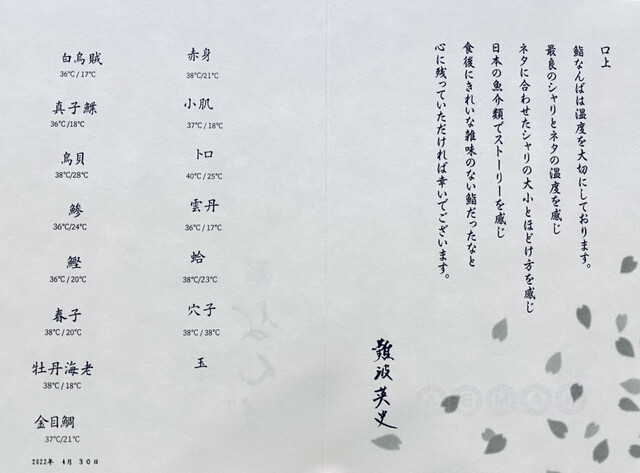 口上
鮨なんばは温度を大切にしております。
最良のシャリとネタの温度を感じ
ネタに合わせたシャリの大小とほどけ方を感じ
日本の魚介類でストーリーを感じ
食後にきれいな雑味のない鮨だったなと
心に残っていただければ幸いでございます。
難波英史
白烏賊
36℃ / 17℃
真子鰈
36℃ /18℃
鳥貝
38℃/28℃
鯵
36℃/24℃
鰹
36℃ / 20℃
春子
38℃ / 20℃
牡丹海老
38℃ / 18℃
金目鯛
37℃/21℃
赤身
38℃/21℃
小肌
37℃ / 18℃
トロ
40℃ / 25℃
雲丹
36℃ / 17℃
蛤
38℃/23℃
穴子
38℃ / 38℃
玉
2022年 4月 30日